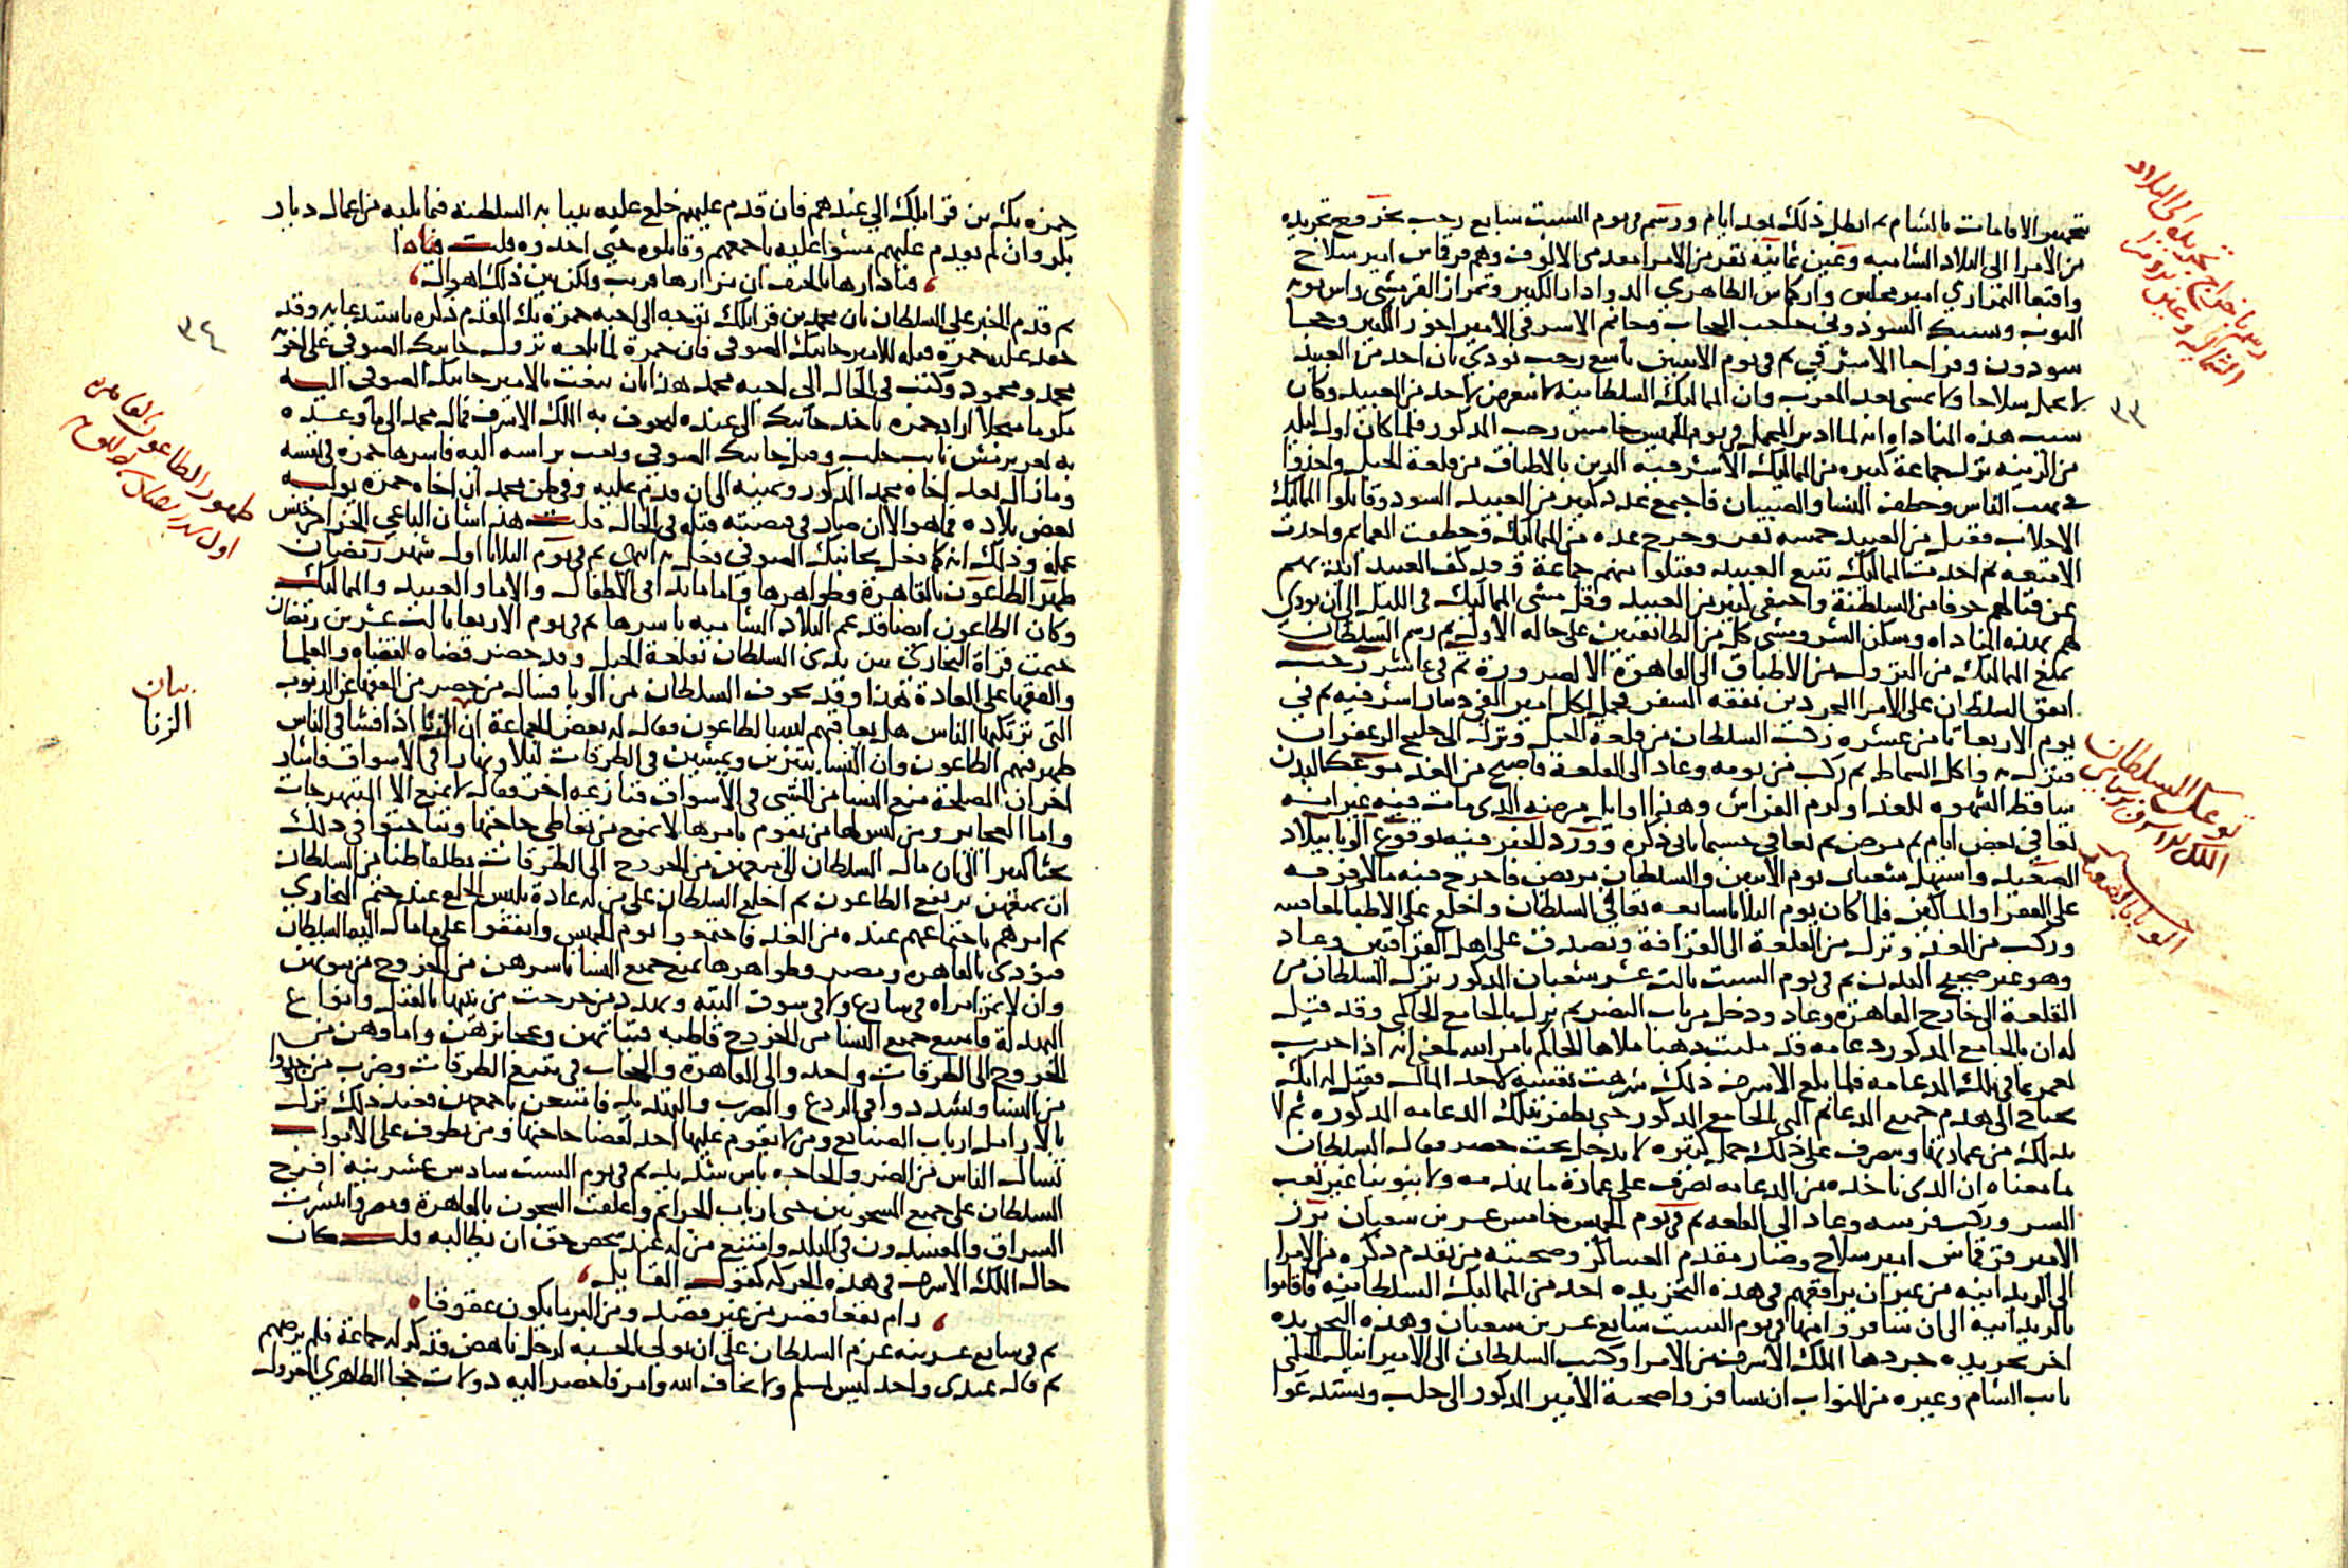 بتجهيز الاقامات بالشام ثم ابطل ذلك بعد ايام ورسم في يوم السبت سابع رجب بخروج تجريده
من الامرا الى البلاد الشاميه وعين ثمانية نفر من الامرا مقدمى الالوف وهم قرقماس امير سلاح
واقبغا التمرازي امير مجلس واركماس الظاهري الدوادار الكبير وتمراز القرمشي راس نوبه
النوب ويشبك السودوني حاجب الحجاب وجانم الاشرفي الامير اخور الكبير وخجا
سودون وقراجا الاشرفي ثم في يوم الاثنين تاسع رجب نودي بان احد من العبيد
لا يحمل سلاحا ولا يمشي بعد المغرب وان المماليك السلطانيه لا تتعرض لاحد من العبيد وكان
سبب هذه المناداه انه لما ادير المحمل في يوم الخميس خامس رجب المذكور فلما كان اول ليله
من الزينه نزل جماعة كبيره من المماليك الاشرفيه الذين بالاطباق من قلعة الجبل واخذوا
في نهب الناس وخطف النسا والصبيان فاجتمع عدد كبير من العبيد السود وقاتلوا المماليك
الاجلاب فقتل من العبيد خمسه نفر وجرح عده من المماليك وخطفت العمايم واخذت
الامتعه ثم اخذت المماليك تتبع العبيد فقتلوا منهم جماعة وقد كف العبيد ايديهم
عن قتالهم خوفا من السلطنة واختفى كثير من العبيد وقل مشي المماليك في الليل الى ان نودي
لهم بهذه المناداه وسكن الشر ومشى كل من الطائفتين على حاله الاول ثم رسم السلطان
بمنع المماليك من النزول من الاطباق الى القاهرة الا لضرورة ثم في عاشر رجب
انفق السلطان على الامرا المجردين نفقه السفر فحمل لكل امير الفي دينار اشرفيه ثم في
يوم الاربعا ثامن عشره ركب السلطان من قلعة الجبل ونزل الى خليج الزعفران
فنزل به واكل السماط ثم ركب من يومه وعاد الى القلعة فاصبح من الغد متوعك البدن
ساقط الشهوه للغدا ولزم الفراش وهذا اوايل مرضه الذي مات فيه غير انه
تعافى بعض ايام ثم مرض ثم تعافى حسبما ياتي ذكره وورد الخبر فيه بوقوع الوبا ببلاد
الصعيد واستهل شعبان يوم الاثنين والسلطان مريض فاخرج فيه مالا فرقه
على الفقرا والمساكين فلما كان يوم الثلاثا تاسعه تعافى السلطان واخلع على الاطبا لمعافيته
وركب من الغد ونزل من القلعة الى القرافة وتصدق على اهل القرافتين وعاد
وهو غير صحيح البدن ثم في يوم السبت ثالث عشر شعبان المذكور نزل السلطان من
القلعة الى خارج القاهرة وعاد ودخل من باب النصر ثم نزل بالجامع الحاكمي وقد قيل
له ان بالجامع المذكور دعامه قد مليت ذهبا ملاها الحاكم بامر الله لمعنى انه اذا خرب
يعمر بما في تلك الدعامه فلما بلغ الاشرف ذلك شرهت نفسه لاخذ المال فقيل له انك
تحتاج الى هدم جميع الدعائم التي بالجامع المذكور حتى تظفر بتلك الدعامه المذكوره ثم لا
بد لك من عمارتها ويصرف على ذلك جمل كثيره لا يدخل تحت حصر فقال السلطان
ما معناه ان الذي ناخذه من الدعامه يصرف على عمارة ما يهدمه ولا ينوبنا غير تعب
السر وركب فرسه وعاد الى القلعه ثم في يوم الخميس خامس عشرين شعبان برز
الامير قرقماس امير سلاح وصار مقدم العساكر وصحبته من تقدم ذكره من الامرا
الى الريدانيه من غير ان يرافقهم في هذه التجريده احد من المماليك السلطانيه فاقاموا
بالريدانيه الى ان سافروا منها في يوم السبت سابع عشرين شعبان وهذه التجريده
اخر تجريده جردها الملك الاشرف من الامرا وكتب السلطان الى الامير اينال الجكمي
نايب الشام وغيره من النواب ان يسافروا صحبة الامير المذكور الى حلب ويستدعوا
رسم باخراج تجريده الى البلاد
الشماليه وعين
٣٣
توعك السلطان
الملك الاشرف برسباي
الوبا بالصعيد
حمزه بك بن قرايلك الى عندهم فان قدم عليهم خلع عليه بنيابه السلطنه فيما يليه من اعمال ديار
بكر وان لم يقدم عليهم مشوا عليه باجمعهم وقاتلوه حتى اخذوه قلت
فيا دارها بالخيف ان مزارها قريب ولكن بين ذلك اهوال
ثم قدم الخبر على السلطان بان محمد بن قرايلك توجه الى اخيه حمزة بك المقدم ذكره باستدعايه وقد
حقد عليه حمزة قتله للامير جانبك الصوفي فان حمزة لما بلغه نزول جانبك الصوفي على اخوته
محمد ومحمود وكتب في الحال الى اخيه محمد هذا بان يبعث بالامير جانبك الصوفي اليه
مكرما مبجلا اراد حمزه ياخذ جانبك الى عنده ليخوف به الملك الاشرف فمال محمد الى ما وعده
به تغري برمش نايب حلب وقتل جانبك الصوفي وبعث براسه اليه فاسرها حمزه في نفسه
وما زال يعد اخاه محمد المذكور ويمنيه الى ان قدم عليه وفي ظن محمد ان اخاه حمزة يوليه
بعض بلاده فما هو الا ان صار في قبضته قتله في الحال قلت هذا شان الباغي الجزا من جنس
عمله وذلك انه كما فعل بجانبك الصوفي فعل به انتهى ثم في يوم الثلاثا اول شهر رمضان
ظهر الطاعون بالقاهرة وظواهرها وما بدا في الاطفال والاما والعبيد والمماليك
وكان الطاعون ايضا قد عم البلاد الشاميه باسرها ثم في يوم الاربعا ثالث عشرين رمضان
ختمت قراة البخاري بين يدي السلطان بقلعة الجبل وقد حضر قضاه القضاه والعلما
والفقها على العادة هذا وقد تخوف السلطان من الوبا فسال من حضر من الفقها عن الذنوب
التي يرتكبها الناس هل يعاقبهم الله بالطاعون فقال له بعض الجماعة ان الزنا اذا فشا في الناس
ظهر فيهم الطاعون وان النسا يتزين ويمشين في الطرقات ليلا ونهارا في الاسواق فاشار
اخر ان المصلحة منع النسا من المشي في الاسواق فنازعه اخر فقال لا يمنع الا المتبهرجات
واما العجايز ومن ليس لها من يقوم بامرها لا يمنع من تعاطي حاجتها وتباحثوا في ذلك
بحثا كبيرا الى ان مال السلطان الى منعهن من الخروج الى الطرقات مطلقا ظنا من السلطان
ان بمنعهن يرتفع الطاعون ثم اخلع السلطان على من له عادة بلبس الخلع عند ختم البخاري
ثم امرهم باجتماعهم عنده من الغد فاجتمعوا يوم الخميس واتفقوا على ما مال اليه السلطان
فنودي بالقاهره ومصر وظواهرها بمنع جميع النسا باسرهن من الخروج من بيوتهن
وان لا تمر امراه في شارع ولا في سوق البته وتهدد من خرجت من بيتها بالقتل وانواع
البهدلة فامتنع جميع النسا من الخروج قاطبه فتياتهن وعجائزهن واماوهن من
الخروج الى الطرقات واخذ والي القاهرة والحجاب في تتبع الطرقات وضرب من وجدوا
من النسا وشددوا في الردع والضرب والتهديد فامتنعن باجمعهن فعند ذلك نزل
بالارامل ارباب الصنايع ومن لا يقوم عليها احد لقضا حاجتها ومن تطوف على الابواب
تسال الناس من الضر والحاجه باس شديد ثم في يوم السبت سادس عشرينه افرج
السلطان على جميع المسجونين حتى ارباب الجرايم واغلقت السجون بالقاهرة ومصر وانتشرت
السراق والمفسدون في البلد وامتنع من له عند شخص حق ان يطالبه قلت كان
حال الملك الاشرف في هذه الحركه كقول القايل
رام نفعا فضر من غير قصد ومن البر ما يكون عقوقا
ثم في سابع عشرينه عزم السلطان على ان يولي الحسبه لرجل ناهض فذكر له جماعة فلم يرضهم
ثم قال عندي واحد ليس بمسلم ولا يخاف الله وامر فاحضر اليه دولات خجا الظاهري المعزول
٣٤
ظهور الطاعون بالقاهره
اول شهر رمضان
بيان
الزنا